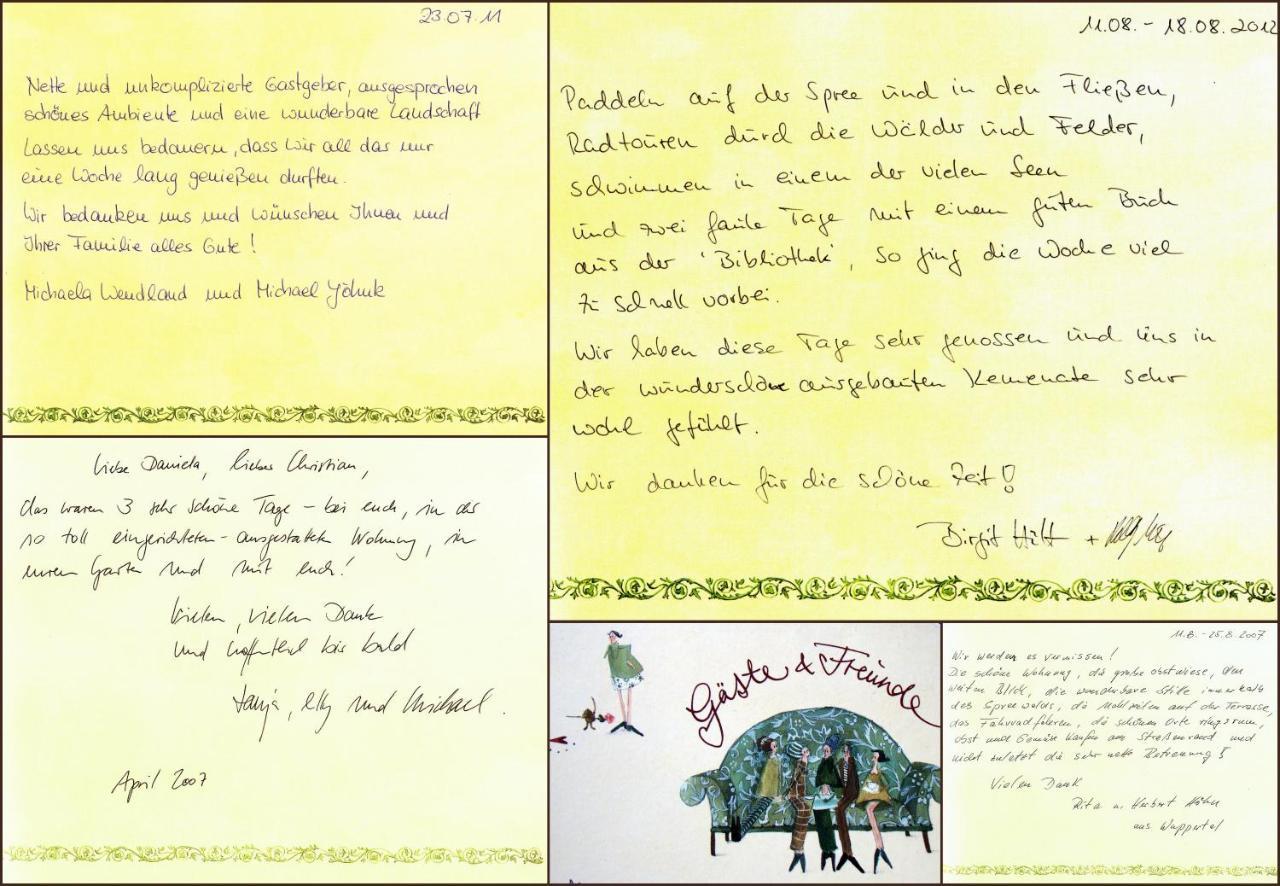 23.07.11
Nette und unkomplizierte Gastgeber, ausgesprochen
schönes Ambiente und eine wunderbare Landschaft
lassen uns bedauern, dass wir all das nur
eine Woche lang genießen durften.
Wir bedanken uns und wünschen Ihnen und
Ihrer Familie alles Gute!
Michaela Wendland und Michael Jöhnk
11.08. - 18.08.2012
Paddeln auf der Spree und in den Fließen,
Radtouren durch die Wälder und Felder,
schwimmen in einem der vielen Seen
und zwei faule Tage mit einem guten Buch
aus der 'Bibliothek', so ging die Woche viel
zu schnell vorbei.
Wir haben diese Tage sehr genossen und uns in
der wunderschöne ausgebauten Kemenate sehr
wohl gefühlt.
Wir danken für die schöne Zeit!
Birgit +
Liebe Daniela, lieber Christian,
das waren 3 sehr schöne Tage – bei euch, in der
so toll eingerichteten - ausgestatteten Wohnung, in
eurem Garten und mit euch!
Vielen, vielen Dank
und hoffentlich bis bald
Tanja, Elly und Michael.
April 2007
Gäste & Freunde
11.8. - 25.8.2007
Wir werden es vermissen!
Die schöne Wohnung, die große Obstwiese, den
weiten Blick, die wunderbare Stille innerhalb
des Spreewalds, die Mahlzeiten auf der Terrasse,
das Fahrradfahren, die schönen Orte ringsrum,
Obst und Gemüse kaufen am Straßenrand und
nicht zuletzt die sehr nette Betreuung!
Vielen Dank
Rita u. Herbert Höhn
aus Wuppertal